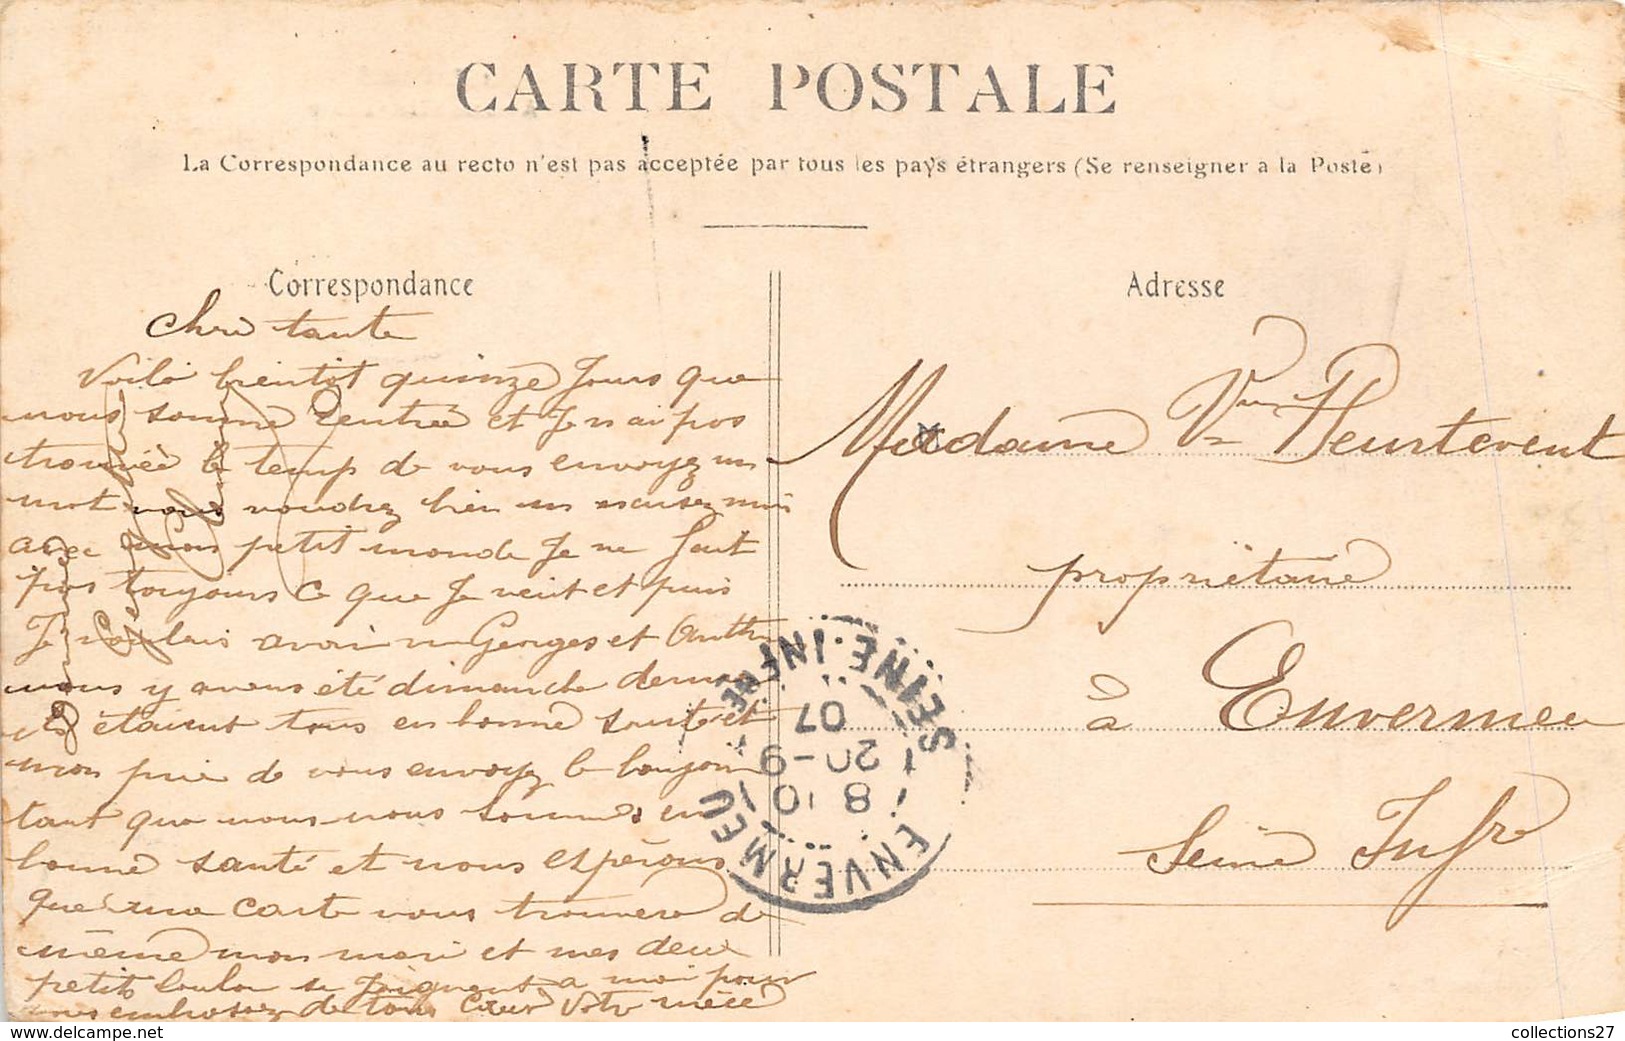 CARTE POSTALE
La Correspondance au recto n'est pas acceptée par tous les pays étrangers (Se renseigner a la Poste)
Correspondance
chere tante
Voila bientot quinze Jours que
nous somme Rentrée et Je n ai pas
trouvée le temp de vous envoyez un
mot vous voudrez bien un excusez moi
avec mon petit monde Je ne fait
pas toujours ce que Je veut et puis
Je voulais avoir vu Georges et
nous y avons été dimanche dernie
ils étaient tous en bonne santé et
mon prie de vous envoyez le bonjour
tant que nous nous sommes en
bonne santé et nous espérons
que ma carte vous trouvera de
même mon mari et mes deux
petits loulou se Joignent a moi pour
vous embrassez de tous Cœur Votre niéce
Adresse
Madame Vve Heurtevent
propriétaire
à Envermeu
Seine Infre
ENVERMEU
SEINE-INFRE
8 10
20-9
07
collections27
www.delcampe.net